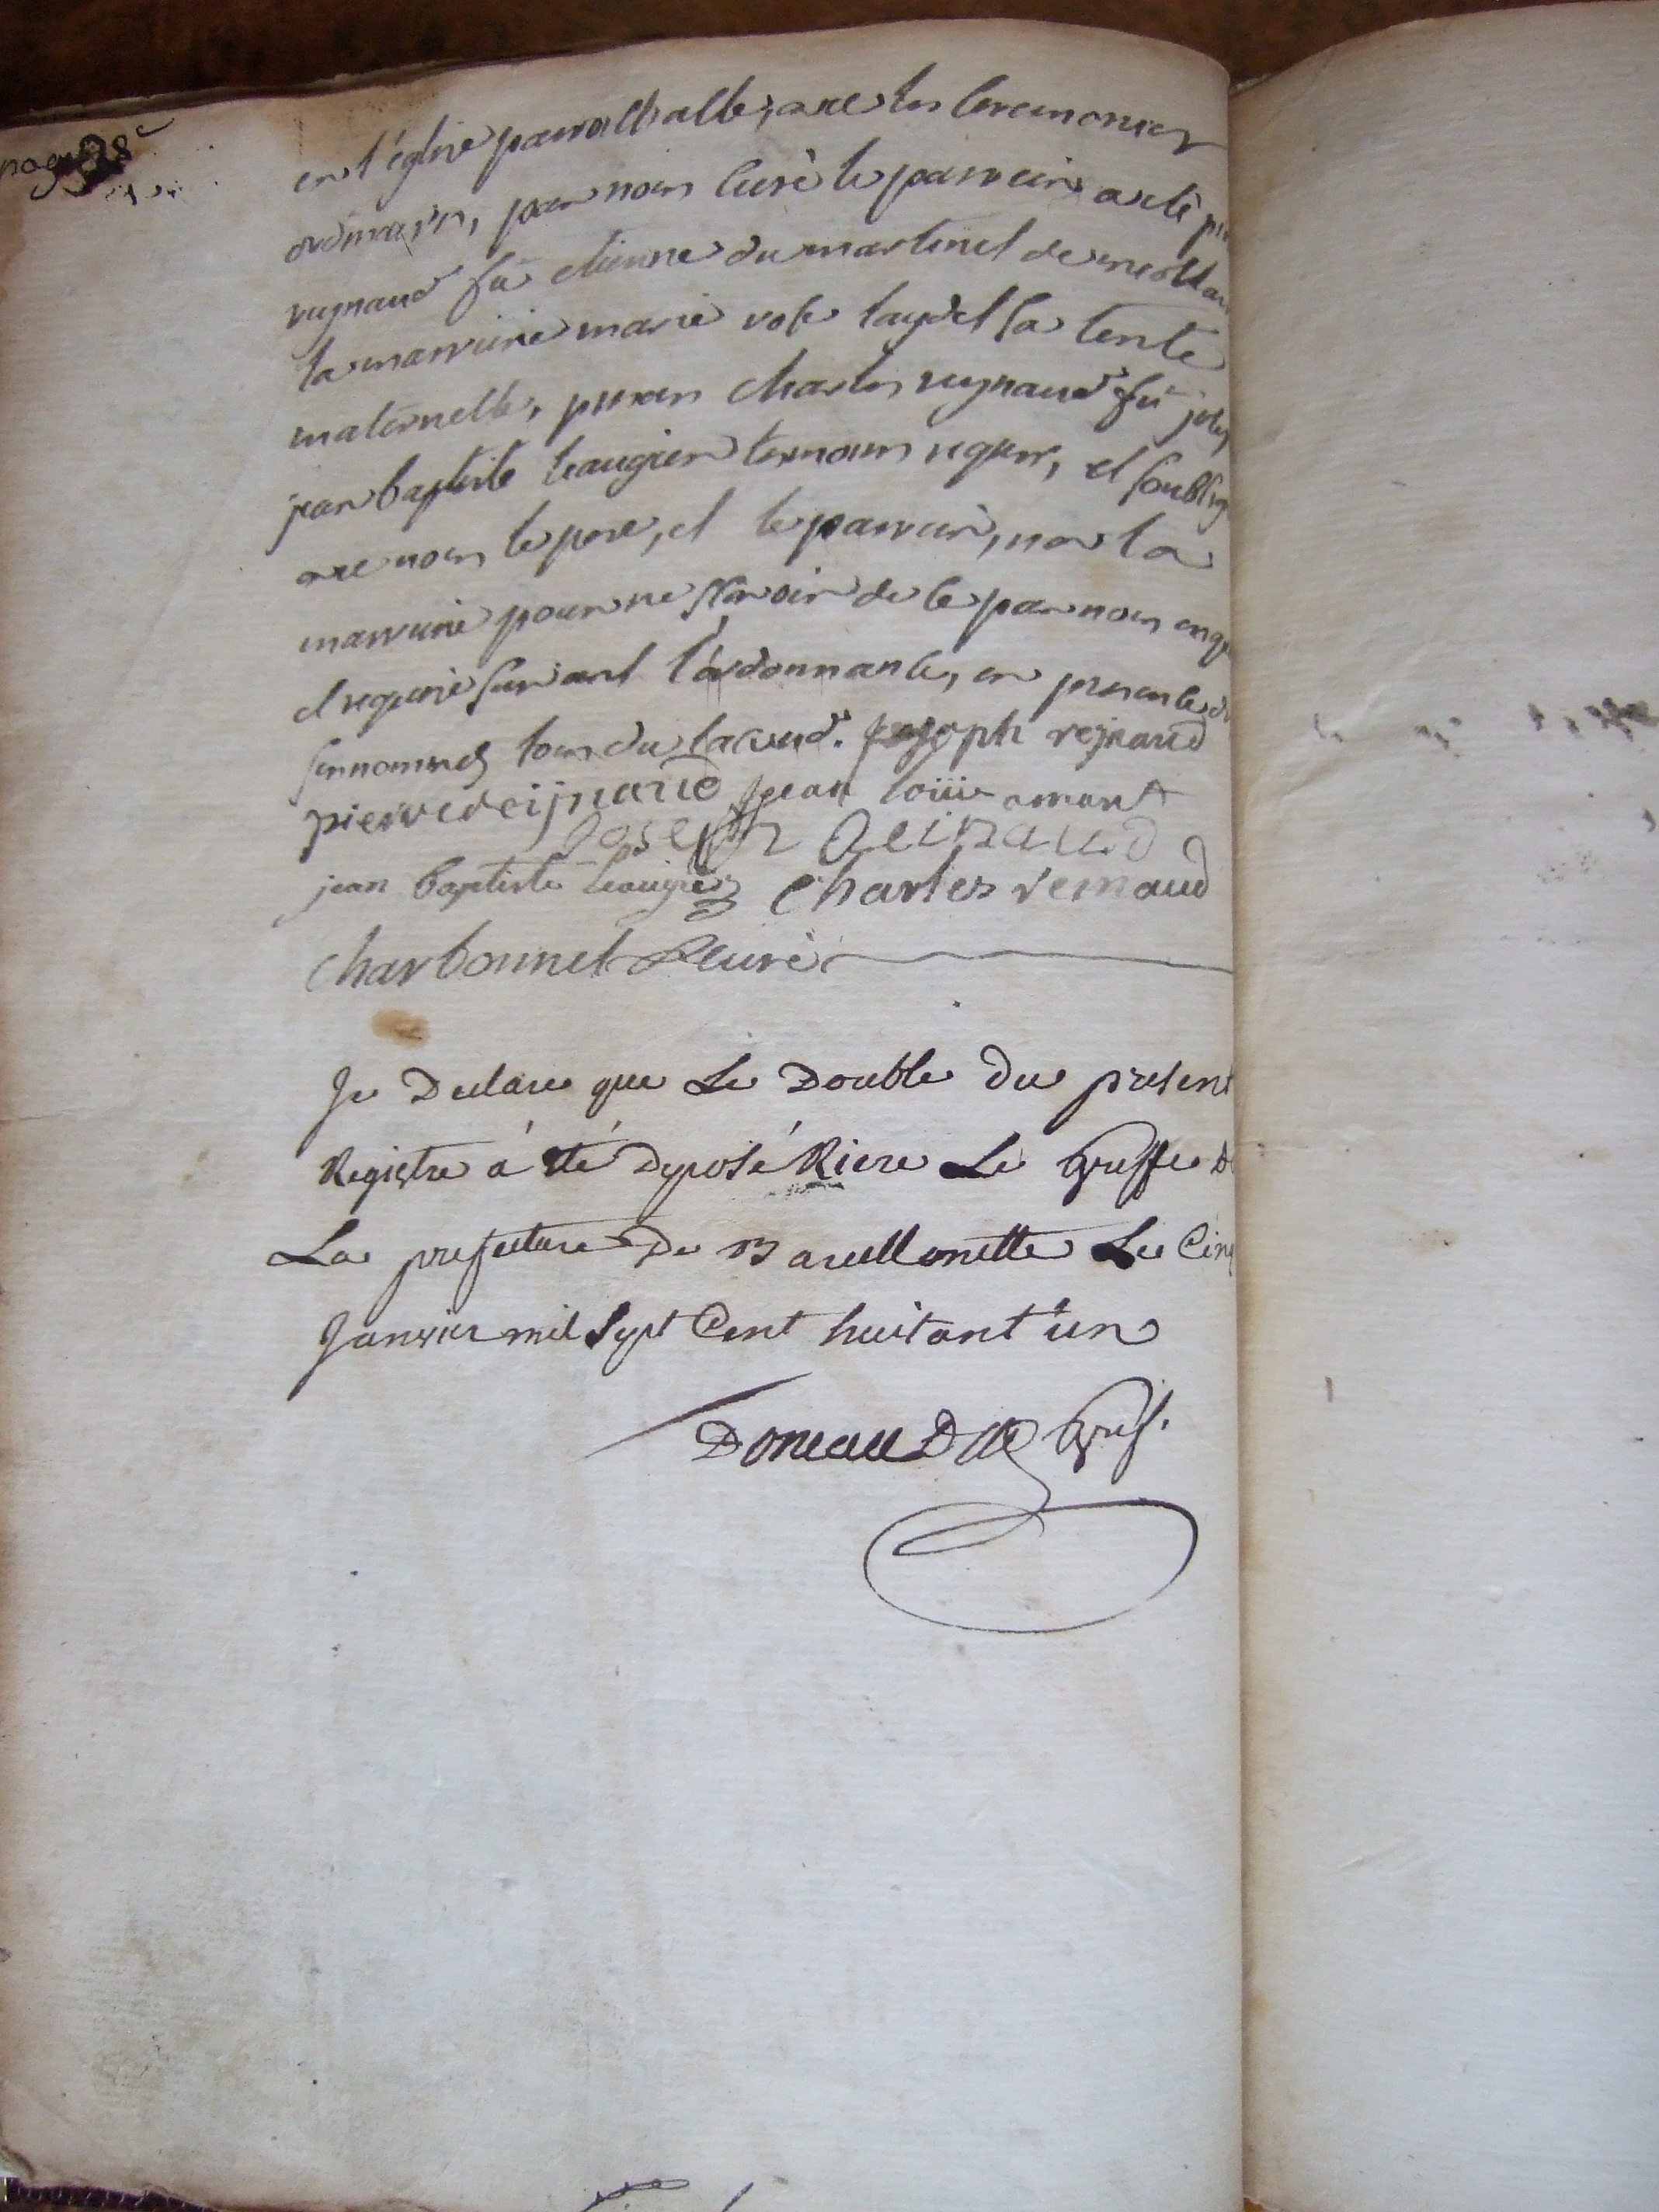 page 38e
en l'église parroissialle, avec les ceremonies
ordinaires, par nous curé le parrein a eté
reynaud fû etienne du martinet de meollans
la marreine marie rose laydet sa tente
maternelle, presens charles reynaud fû
jean baptiste leaugier temoins requis, et soubsig
avec nous le pere, et le parrein, non la
marreine pour ne sçavoir de ce par nous enq
et requise suivant l'ordonnance, en presence d
surnommés tous du laverd. joseph rejnaud
pierre reijnaud jean loüis
joseph Reinaud
jean baptiste leaugier charles reinaud
charbonnel curé
Je Declare que Le Double Du present
Registre á été Deposé Riere Le Greffe D
La prefecture De Barcellonette Le Cinq
Janvier mil Sept Cent huitant'un
Doneaud Greff.